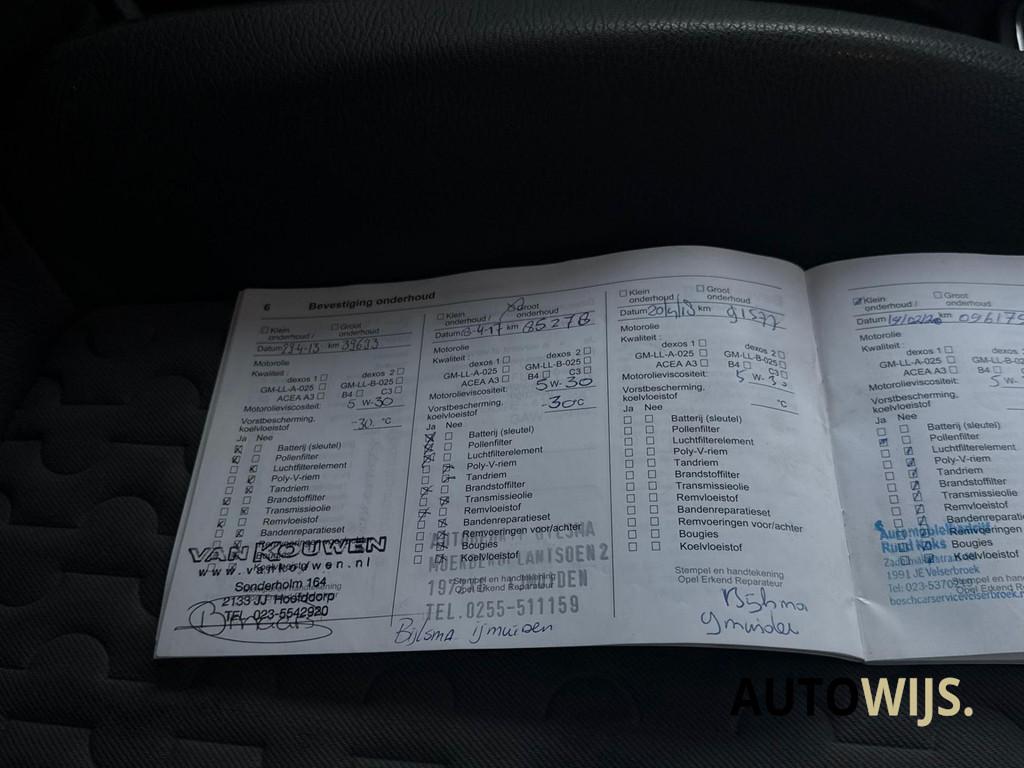 6 Bevestiging onderhoud
Klein onderhoud / Groot onderhoud
Datum km 39693
Motorolie
Kwaliteit :
dexos 1 dexos 2
GM-LL-A-025 GM-LL-B-025
ACEA A3 B4 C3
Motorolieviscositeit: 5 W-30
Vorstbescherming, koelvloeistof -30 °C
Ja Nee
Batterij (sleutel)
Pollenfilter
Luchtfilterelement
Poly-V-riem
Tandriem
Brandstoffilter
Transmissieolie
Remvloeistof
Bandenreparatieset
VAN KOUWEN
www.vankouwen.nl
Sonderholm 164
2133 JJ Hoofddorp
TEL. 023-5542920
Klein onderhoud / Groot onderhoud
Datum km 85278
Motorolie
Kwaliteit :
dexos 1 dexos 2
GM-LL-A-025 GM-LL-B-025
ACEA A3 B4 C3
Motorolieviscositeit: 5W-30
Vorstbescherming, koelvloeistof -30c
Ja Nee
Batterij (sleutel)
Pollenfilter
Luchtfilterelement
Poly-V-riem
Tandriem
Brandstoffilter
Transmissieolie
Remvloeistof
Bandenreparatieset
Remvoeringen voor/achter
Bougies
Koelvloeistof
Stempel en handtekening
Opel Erkend Reparateur
TEL.0255-511159
Bijlsma ijmuiden
Klein onderhoud / Groot onderhoud
Datum km 91577
Motorolie
Kwaliteit :
dexos 1 dexos 2
GM-LL-A-025 GM-LL-B-025
ACEA A3 B4 C3
Motorolieviscositeit: 5 W-30
Vorstbescherming, koelvloeistof °C
Ja Nee
Batterij (sleutel)
Pollenfilter
Luchtfilterelement
Poly-V-riem
Tandriem
Brandstoffilter
Transmissieolie
Remvloeistof
Bandenreparatieset
Remvoeringen voor/achter
Bougies
Koelvloeistof
Stempel en handtekening
Opel Erkend Reparateur
Klein onderhoud / Groot onderhoud
Datum 19/02/20 km
Motorolie
Kwaliteit :
dexos 1
GM-LL-A-025
ACEA A3
Motorolieviscositeit: 5 W-
Vorstbescherming, koelvloeistof
Ja Nee
Batterij (sleutel)
Pollenfilter
Luchtfilterelement
Poly-V-riem
Tandriem
Brandstoffilter
Transmissieolie
Remvloeistof
Remvoeringen
Bougies
Koelvloeistof
1991 JE Velserbroek
AUTOWIJS.